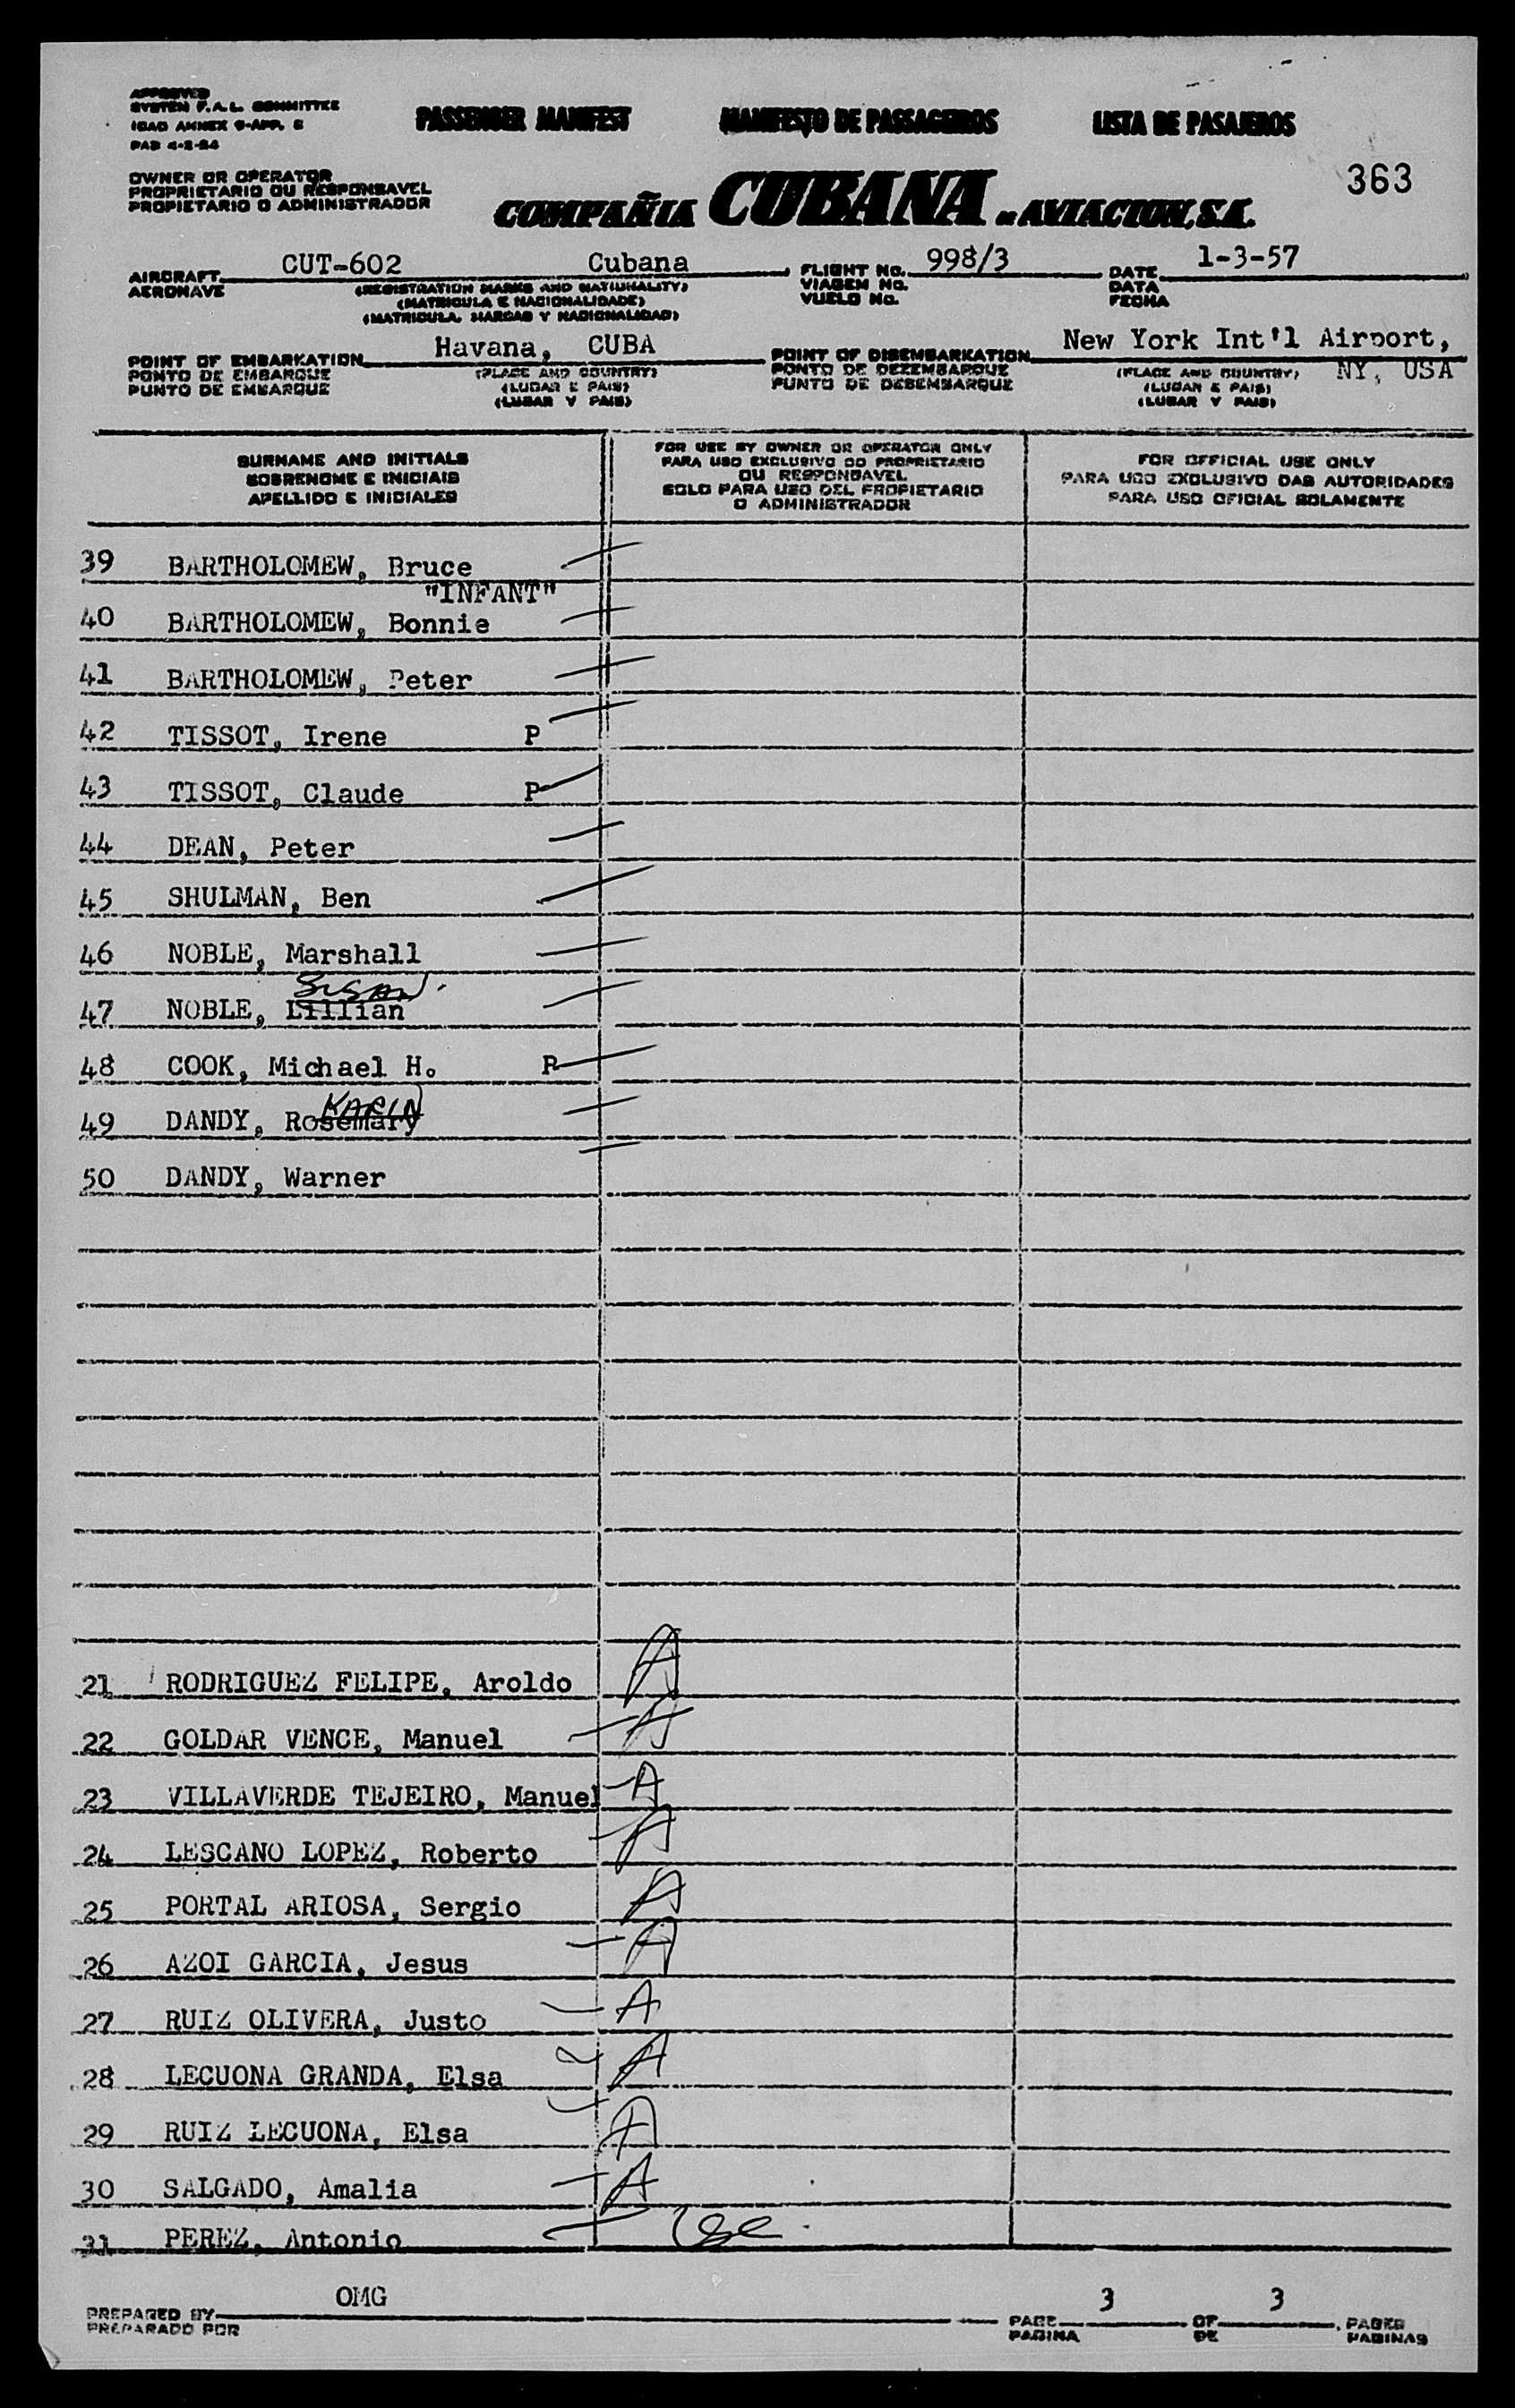 APPROVED
SYSTEM F.A.L. COMMITTEE
ICAO ANNEX 9-APP. 
PAB 4-2-54
PASSENGER MANIFEST MANIFESTO DE PASSAGEIROS LISTA DE PASAJEROS
363
OWNER OR OPERATOR
PROPRIETARIO OU RESPONSAVEL
PROPIETARIO O ADMINISTRADOR
COMPAÑIA CUBANA DE AVIACION, S.A.
AIRCRAFT CUT-602 Cubana, FLIGHT No. 998/3, DATE 1-3-57
AERONAVE (REGISTRATION MARKS AND NATIONALITY) VIAGEM No. DATA
(MATRICULA E NACIONALIDADE) VUELO No. FECHA
(MATRICULA, MARCAS Y NACIONALIDAD)
POINT OF EMBARKATION Havana, CUBA POINT OF DISEMBARKATION New York Int'l Airport,
PONTO DE EMBARQUE (PLACE AND COUNTRY) PONTO DE DEZEMBARQUE (PLACE AND COUNTRY) NY, USA
PUNTO DE EMBARQUE (LUGAR E PAIS) PUNTO DE DESEMBARQUE (LUGAR E PAIS)
(LUGAR Y PAIS) (LUGAR Y PAIS)
SURNAME AND INITIALS
SOBRENOME E INICIAIS
APELLIDO E INICIALES
FOR USE BY OWNER OR OPERATOR ONLY
PARA USO EXCLUSIVO DO PROPRIETARIO
OU RESPONSAVEL
SOLO PARA USO DEL PROPIETARIO
O ADMINISTRADOR
FOR OFFICIAL USE ONLY
PARA USO EXCLUSIVO DAS AUTORIDADES
PARA USO OFICIAL SOLAMENTE
39 BARTHOLOMEW, Bruce
"INFANT"
40 BARTHOLOMEW, Bonnie
41 BARTHOLOMEW, Peter
42 TISSOT, Irene P
43 TISSOT, Claude P
44 DEAN, Peter
45 SHULMAN, Ben
46 NOBLE, Marshall
SUSAN
47 NOBLE, Lillian
48 COOK, Michael H. P
KARIN
49 DANDY, Rosemary
50 DANDY, Warner
21 RODRIGUEZ FELIPE, Aroldo A
22 GOLDAR VENCE, Manuel A
23 VILLAVERDE TEJEIRO, Manuel A
24 LESCANO LOPEZ, Roberto A
25 PORTAL ARIOSA, Sergio A
26 AZOI GARCIA, Jesus A
27 RUIZ OLIVERA, Justo A
28 LECUONA GRANDA, Elsa A
29 RUIZ LECUONA, Elsa A
30 SALGADO, Amalia A
31 PEREZ, Antonio
PREPARED BY OMG PAGE 3 OF 3, PAGES
PREPARADO POR PAGINA DE PAGINAS